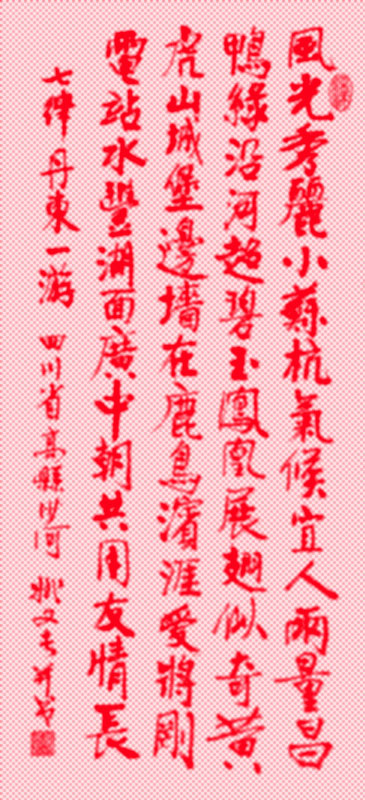 風光秀麗小蘇杭氣候宜人雨量昌
鴨綠沿河超碧玉鳳凰展翅似奇黄
虎山城堡邊墻在鹿鳥濱涯愛將剛
電站水豐湖面廣中朝共用友情長
七律 丹東一游 四川省高縣沙河 姚